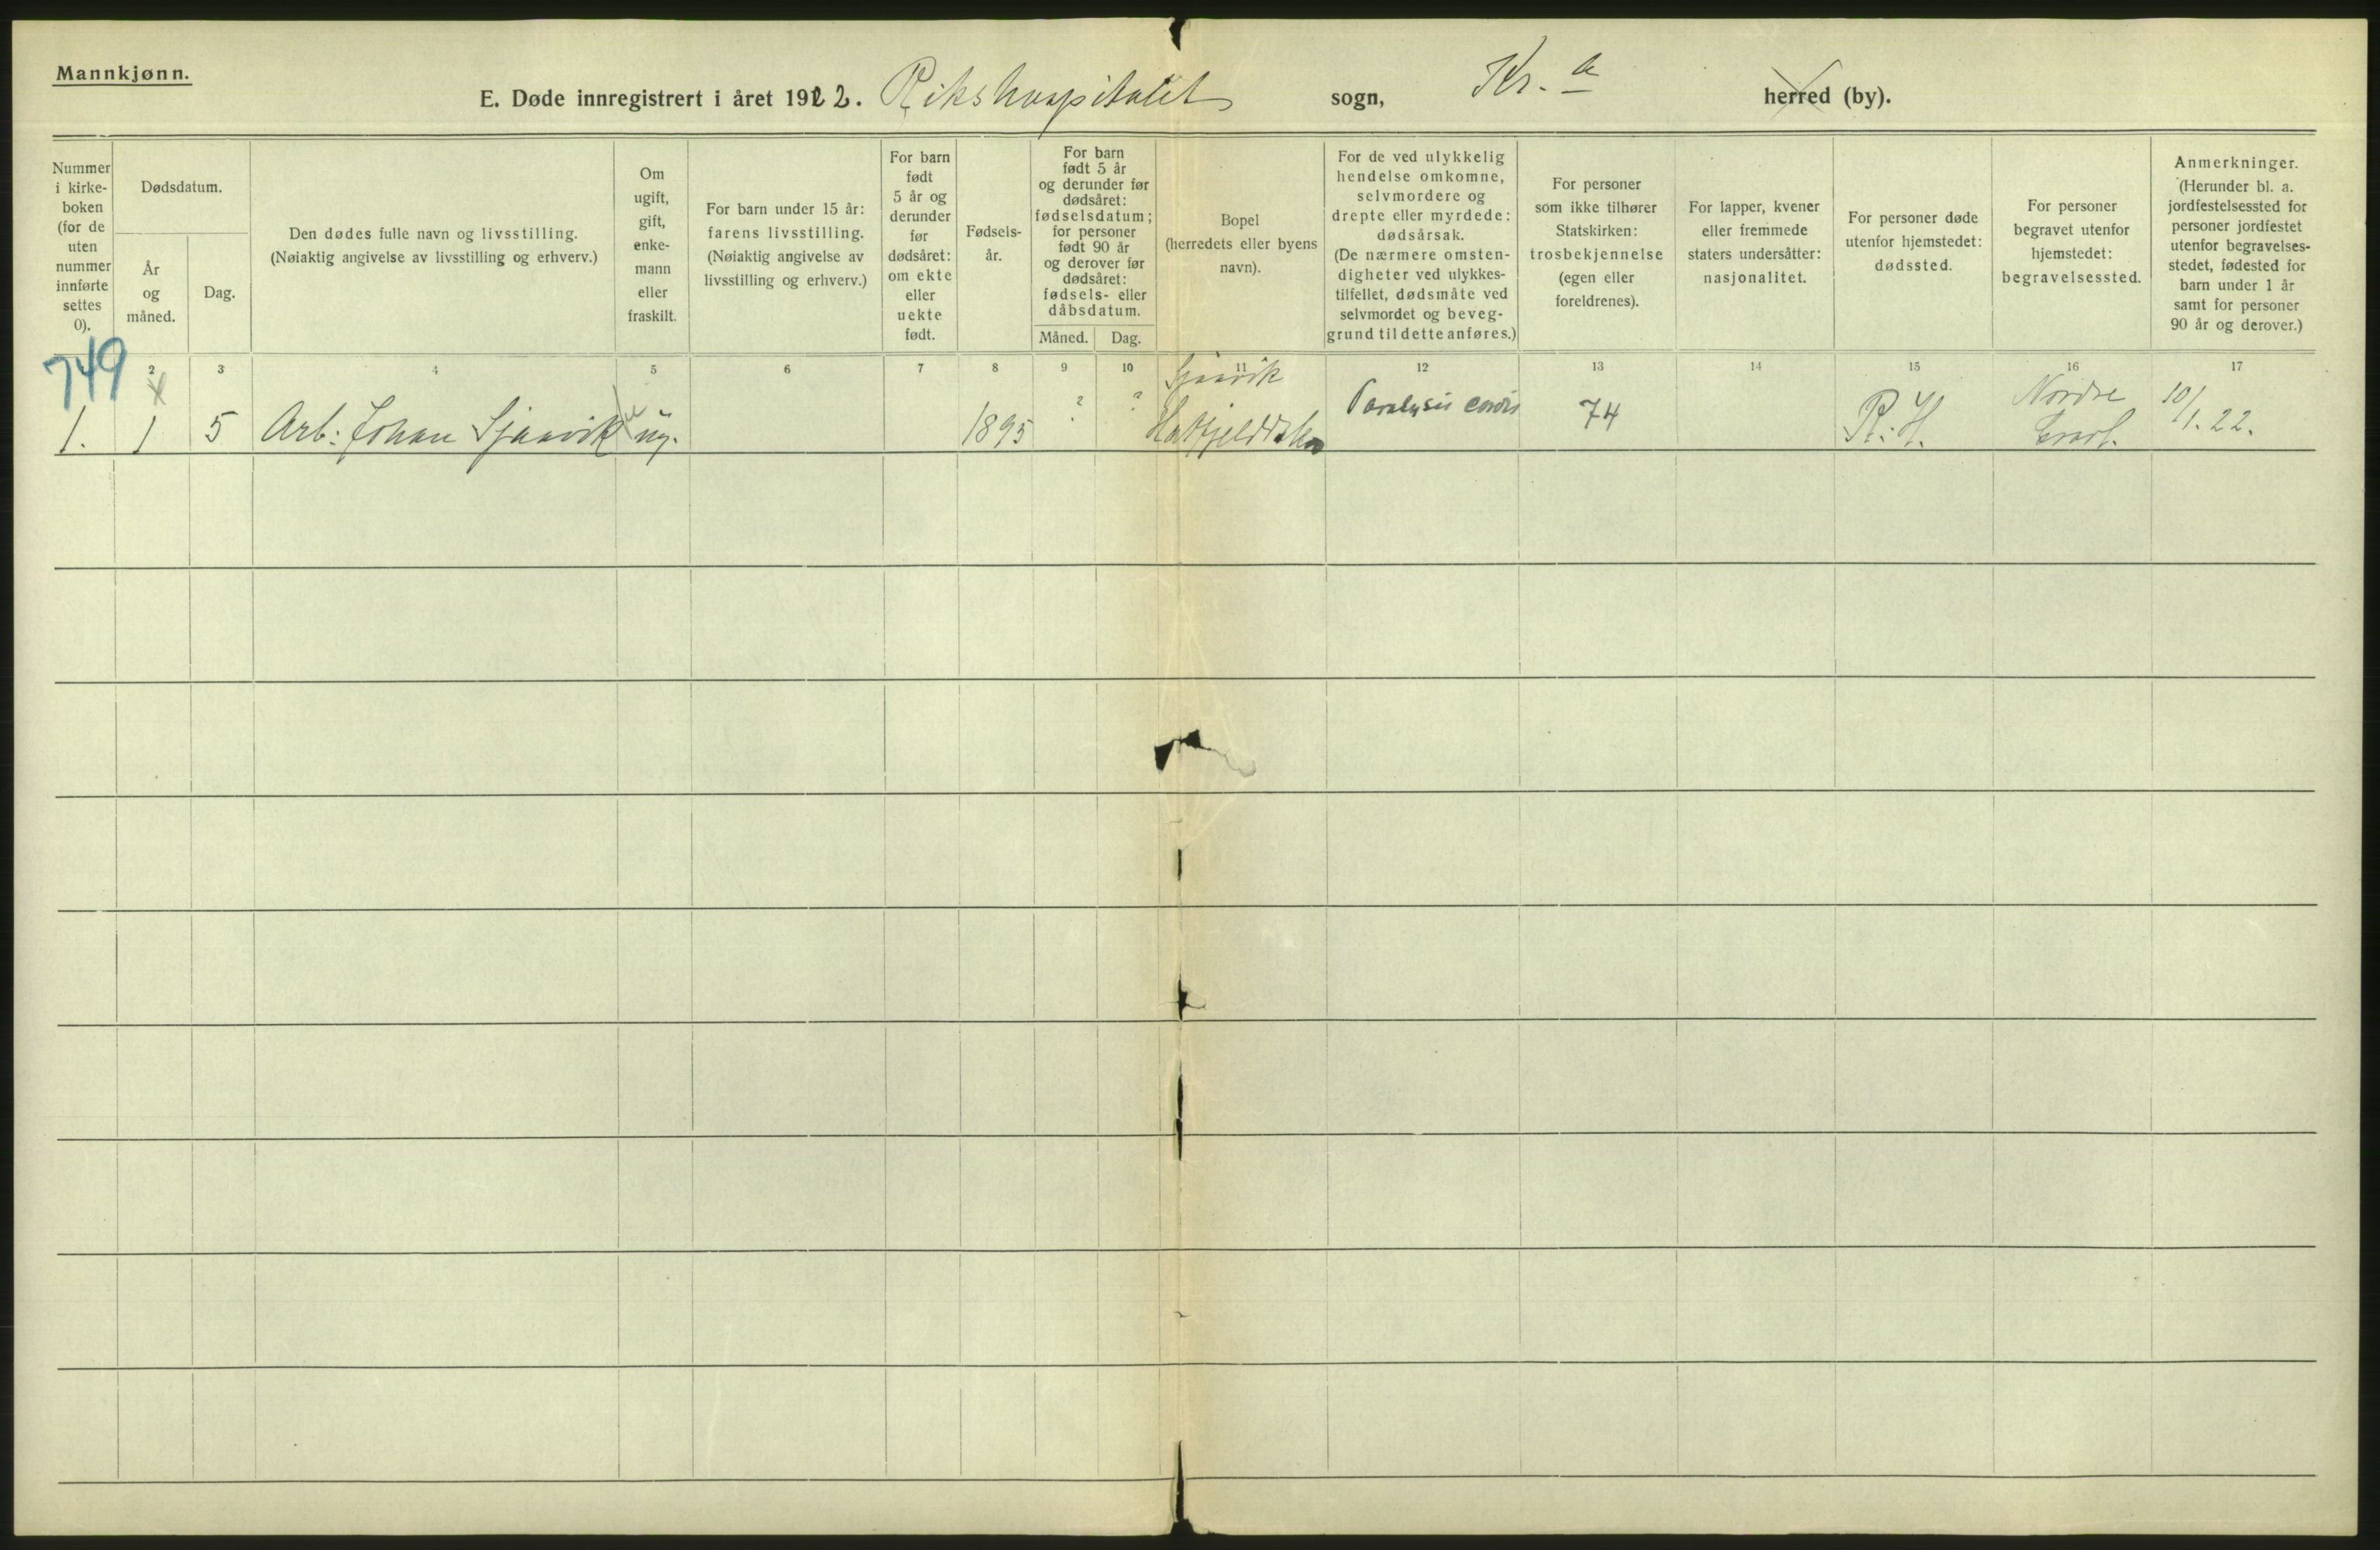 Mannkjønn.
E. Døde innregistrert i året 1922. Rikshospitalet sogn, Kr.a herred (by).
Nummer
i kirke-
boken
(for de
uten
nummer
innførte
settes
0).
Dødsdatum.
År
og
måned.
Dag.
Den dødes fulle navn og livsstilling.
(Nøiaktig angivelse av livsstilling og erhverv.)
Om
ugift,
gift,
enke-
mann
eller
fraskilt.
For barn under 15 år:
farens livsstilling.
(Nøiaktig angivelse av
livsstilling og erhverv.)
For barn
født
5 år og
derunder
før
dødsåret:
om ekte
eller
uekte
født.
Fødsels-
år.
For barn
født 5 år
og derunder før
dødsåret:
fødselsdatum;
for personer
født 90 år
og derover før
dødsåret:
fødsels- eller
dåbsdatum.
Måned. Dag.
Bopel
(herredets eller byens
navn).
For de ved ulykkelig
hendelse omkomne,
selvmordere og
drepte eller myrdede:
dødsårsak.
(De nærmere omsten-
digheter ved ulykkes-
tilfellet, dødsmåte ved
selvmordet og beveg-
grund til dette anføres.)
For personer
som ikke tilhører
Statskirken:
trosbekjennelse
(egen eller
foreldrenes).
For lapper, kvener
eller fremmede
staters undersåtter:
nasjonalitet.
For personer døde
utenfor hjemstedet:
dødssted.
For personer
begravet utenfor
hjemstedet:
begravelsessted.
Anmerkninger.
(Herunder bl. a.
jordfestelsessted for
personer jordfestet
utenfor begravelses-
stedet, fødested for
barn under 1 år
samt for personer
90 år og derover.)
749
2 3 4 5 6 7 8 9 10 11 12 13 14 15 16 17
Sjaavik
Nordre
1. 1 5 Arb: Johan Sjaavik ug. 1895 ? ? Hatfjelddalen Paralysis cordis 74 R.H. Gravl. 10/1.22.